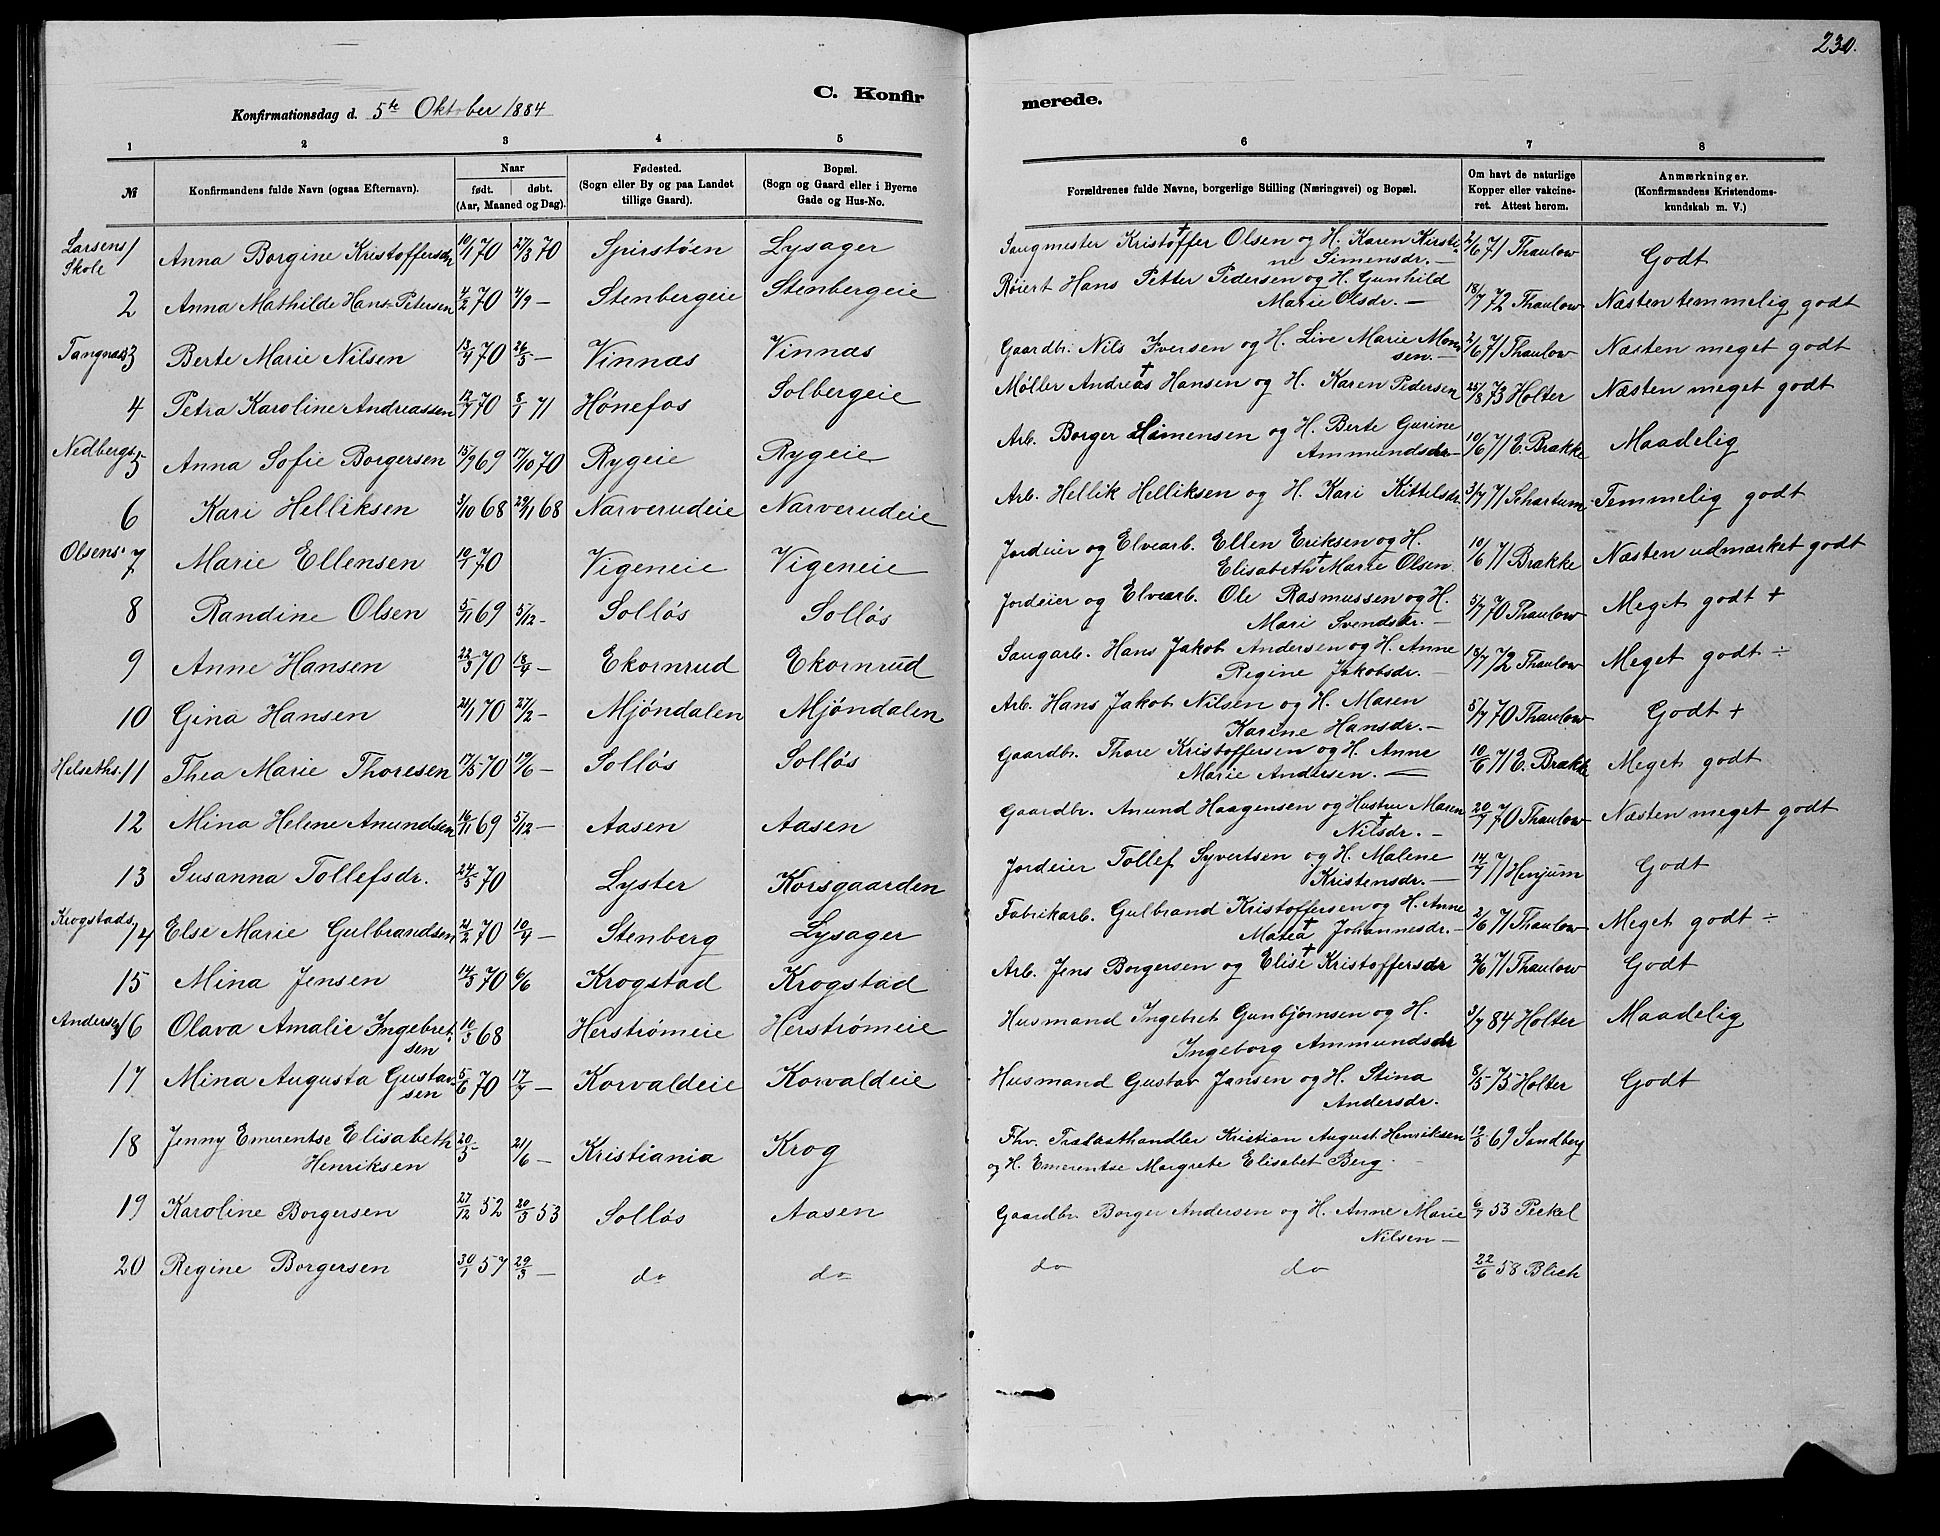 230.
C. Konfir
merede.
Konfirmationsdag d. 5te Oktober 1884
1 2 3 4 5 6 7 8
№
Konfirmandens fulde Navn (ogsaa Efternavn).
Naar
født. døbt.
(Aar, Maaned og Dag).
Fødested.
(Sogn eller By og paa Landet
tillige Gaard).
Bopæl.
(Sogn og Gaard eller i Byerne
Gade og Hus-No.
Forældrenes fulde Navne, borgerlige Stilling (Næringsvei) og Bopæl.
Om havt de naturlige
Kopper eller vakcine-
ret. Attest herom.
Anmærkninger.
(Konfirmandens Kristendoms-
kundskab m. V.)
Larsens 1 Anna Borgine Kristoffersdr 10/1 70 27/3 70 Spirstøen Lysager Saugmester Kristoffer † Olsen og H. Karen Kirsti 2/6 71 Thaulow Godt
Skole ne Simensdr. —
2 Anna Mathilde Hans Petersen 4/2 70 4/9 — Stenbergeie Stenbergeie Røiert Hans Petter Pedersen og H. Gunhild 18/7 72 Thaulow Næsten temmelig godt
Marie Olsdr. —
Tangnæs 3 Berte Marie Nilsen 13/4 70 26/5 — Vinnæs Vinnæs Gaardbr. Nils Iversen og H. Live Marie Mon 2/6 71 Thaulow Næsten meget godt
sen. —
4 Petra Karoline Andreassen 12/7 70 8/1 71 Hønefos Solbergeie Møller Andreas † Hansen og H. Karen Pedersen 25/8 73 Holter Næsten meget godt
Nedbergs 5 Anna Sofie Borgersen 15/9 69 17/10 70 Rygeie Rygeie Arb. Borger Simensen og H. Berte Gurine 10/6 71 E. Brakke Maadelig
Ammundsdr —
6 Kari Helliksen 3/10 68 29/11 68 Narverudeie Narverudeie Arb. Hellik Helliksen og H. Kari Kittelsdr. 3/7 71 Schartum Temmelig godt
Olsens 7 Marie Ellensen 19/1 70 Vigeneie Vigeneie Jordeier og Elvearb. Ellen Eriksen og H. 10/6 71 Brakke Næsten udmærket godt
Elisabeth † Marie Olsen
8 Randine Olsen 5/11 69 5/12 — Solløs Solløs Jordeier og Elvearb. Ole Rasmussen og H. 5/7 70 Thaulow Meget godt +
Mari Svendsdr. —
9 Anne Hansen 22/3 70 18/4 — Ekornrud Ekornrud Saugarb. Hans Jakob Andersen og H. Anne 18/7 72 Thaulow Meget godt ÷
Regine Jakobsdr. —
10 Gina Hansen 21/1 70 27/2 — Mjøndalen Mjøndalen Arb. Hans Jakob Nilsen og H. Maren 5/7 70 Thaulow Godt +
Karine Hansdr. —
Helseths. 11 Thea Marie Thoresen 17/5 70 19/6 — Solløs Solløs Gaardbr. Thore Kristoffersen og H. Anne 10/6 71 E. Brakke Meget godt
Marie Andersen. —
12 Mina Helene Anundsen 16/11 69 5/12 — Aasen Aasen Gaardbr. Anund Haagensen og Hustru Maren 20/7 70 Thaulow Næsten meget godt
† Nilsdr. —
13 Susanna Tollefsdr. 24/5 70 Lyster Korsgaarden Jordeier Tollef Syvertsen og H. Malene 14/7 71 Henjum Godt
Kristensdr. —
Krogstads 14 Else Marie Gulbrandsen 21/2 70 10/4 — Stenberg Lysager Fabrikarb. Gulbrand Kristoffersen og H. Anne 2/6 71 Thaulow Meget godt ÷
Matea † Johannesdr. —
15 Mina Jensen 14/3 70 6/6 Krogstad Krogstad Arb. Jens Borgersen og Elise † Kristoffersdr 2/6 71 Thaulow Godt
Andersen 16 Olava Amalie Ingebret 10/3 68 Herstrømeie Herstrømeie Husmand Ingebret Gunbjørnsen og H. 3/7 84 Holter Maadelig
sen Ingeborg Ammundsdr
17 Mina Augusta Gustav- 5/6 70 17/7 — Korvaldeie Korvaldeie Husmand Gustav Jansen og H. Stina 8/5 75 Holter Godt
sen Andersdr.
18 Jenny Emerentse Elisabeth 20/5 21/6 — Kristiania Krog Fhv. Trælasthandler Kristian August Henriksen 19/8 69 Sandberg
Henriksen og H. Emerentse Margrete Elisabet Berg.
19 Karoline Borgersen 27/12 52 20/3 53 Solløs Aasen Gaardbr. Borger Andersen og H. Anne Marie 6/7 53 Peckel
Nilsen —
20 Regine Borgersen 30/1 57 29/3 — do do do do 22/6 58 Blich